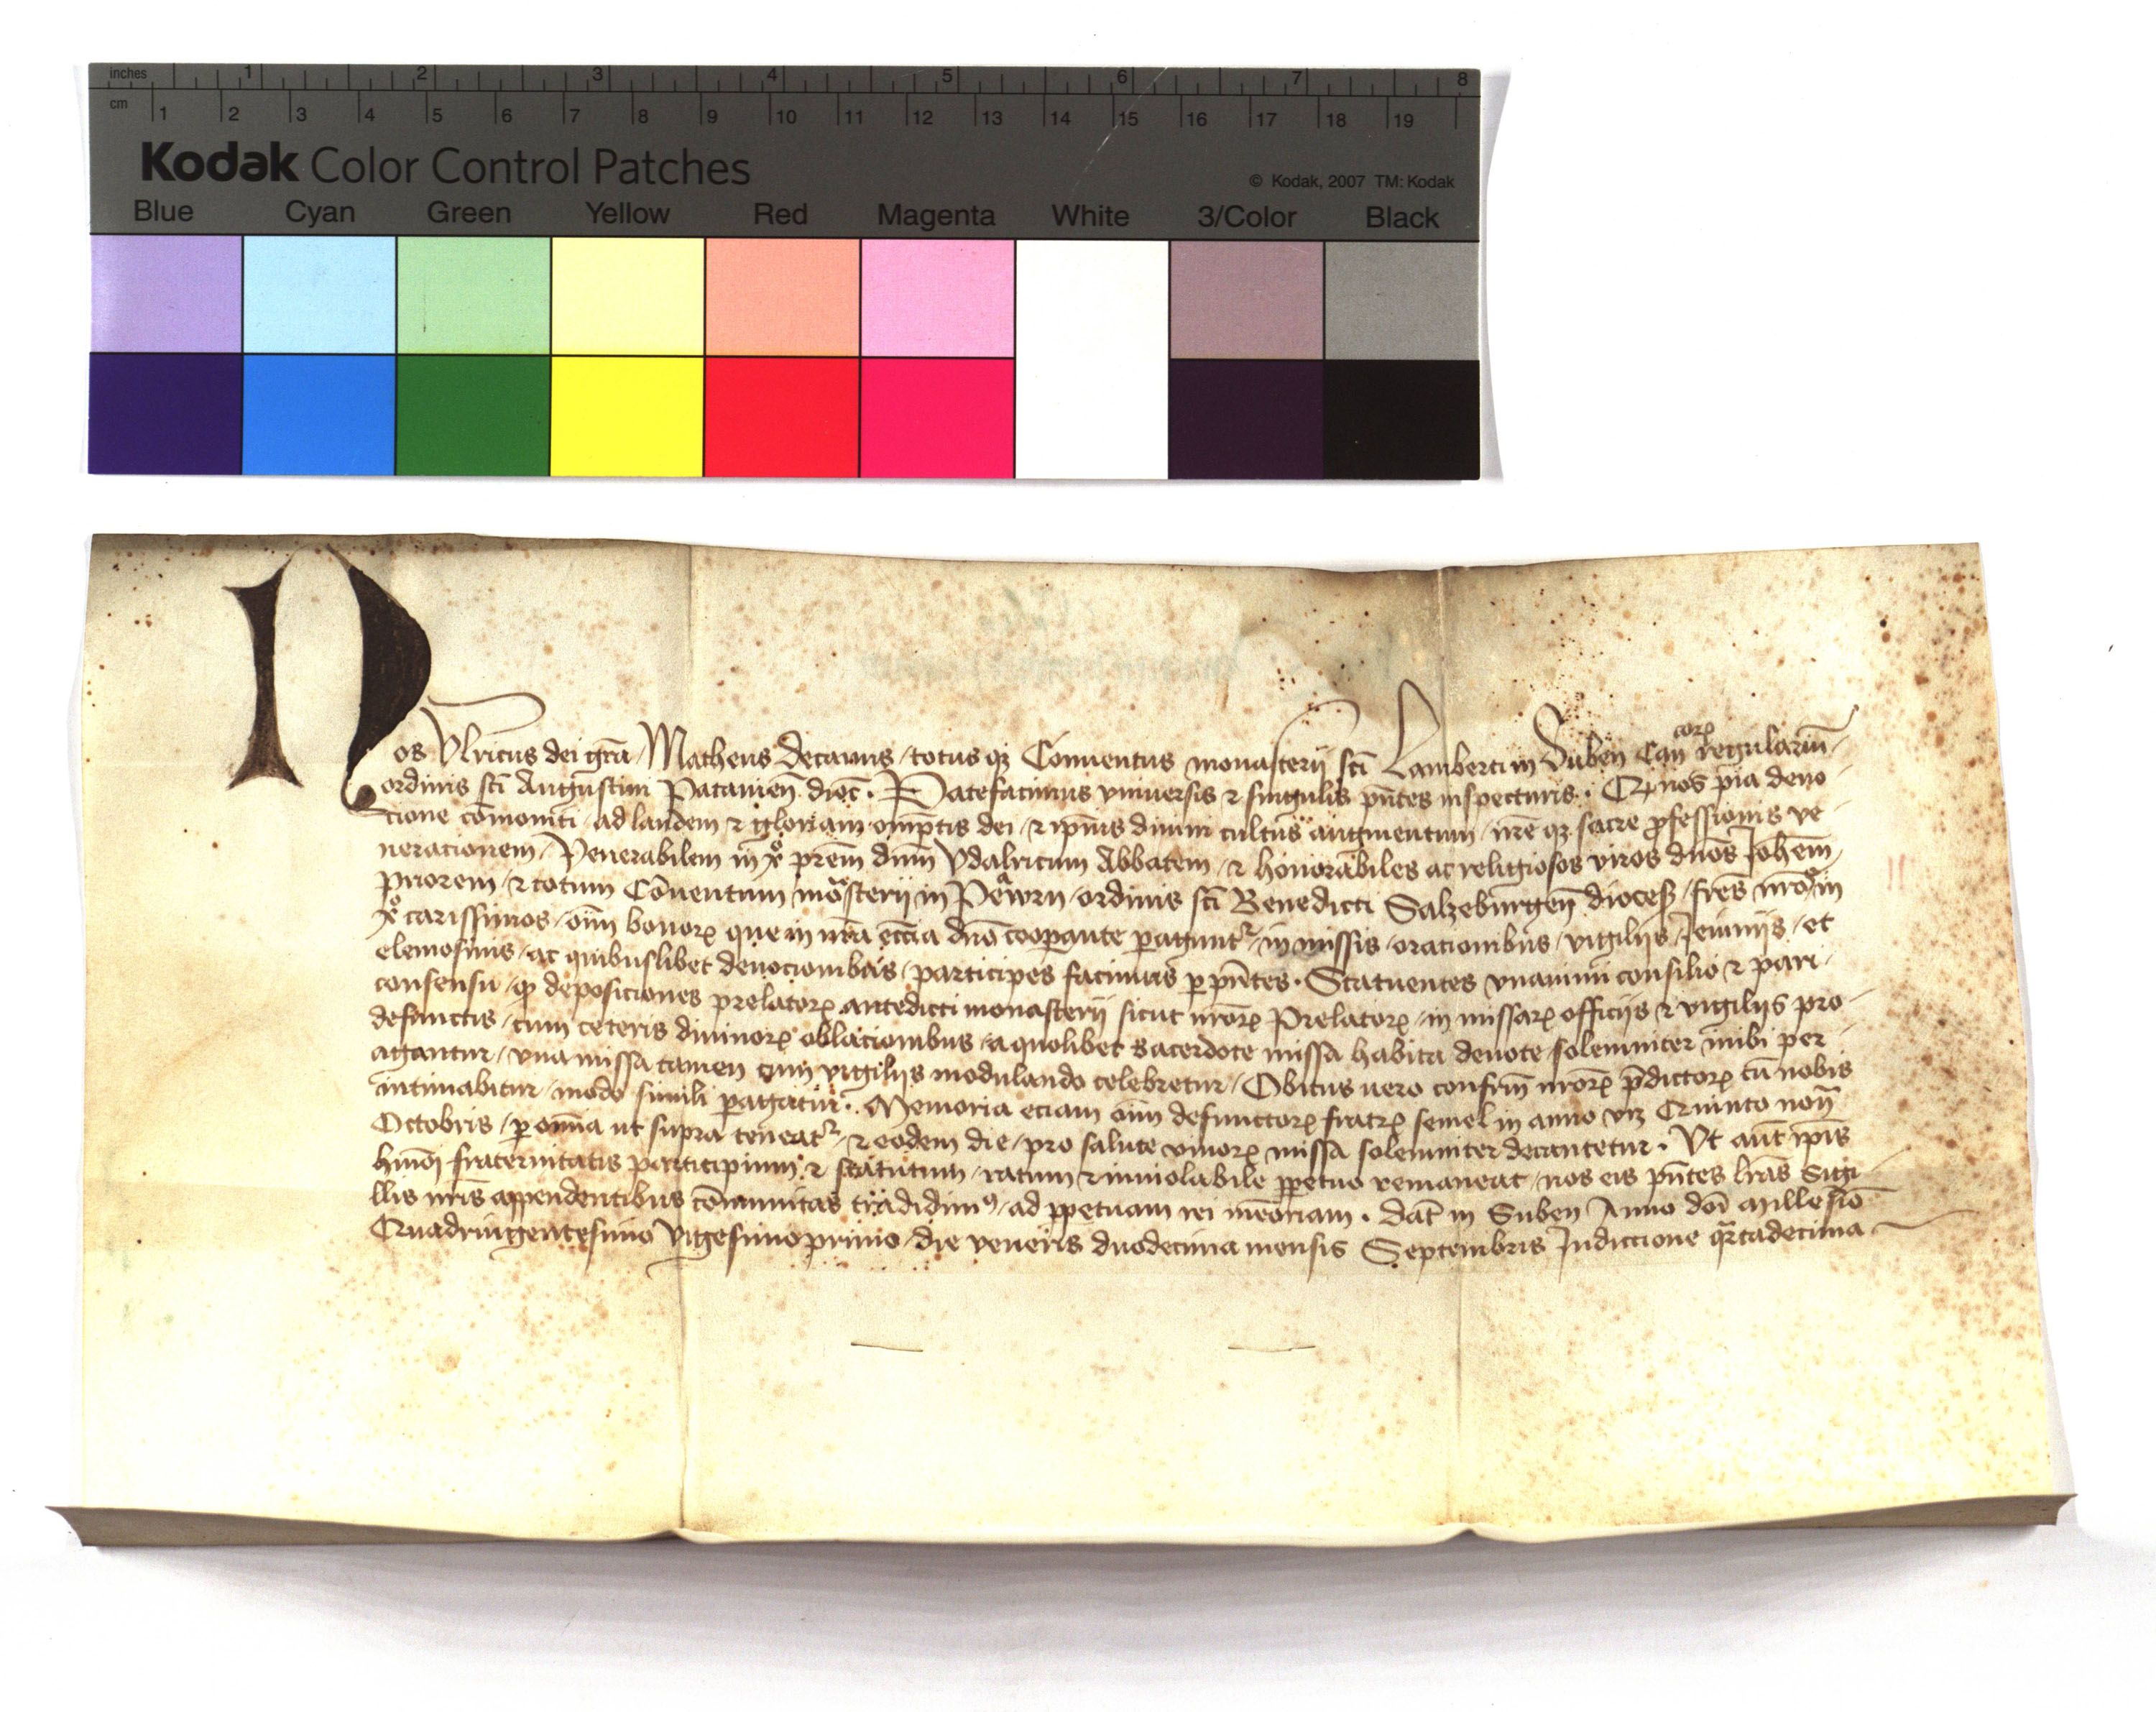 inches 1 2 3 4 5 6 7 8
cm 1 2 3 4 5 6 7 8 9 10 11 12 13 14 15 16 17 18 19
Kodak Color Control Patches
© Kodak, 2007 TM: Kodak
Blue Cyan Green Yellow Red Magenta White 3/Color Black
Nos Ulricus dei gr̄a / Matheus Decanus / totus qȝ Conuentus monasterij sc̄i Lamberti in Suben Canⁿ coꝝ regulariū /
ordinis sc̄i Augustini Patauień dioc̄. Patefacimus vniuersis ⁊ singulis pn̄tes inspecturis. Qꝫ nos pia deuo-
tione com̄oniti / ad laudem ⁊ gloriam om̄ptis dei / ⁊ ip̄ius diuini cultus augmentum / nr̄e qȝ sacre ꝓfessionis ve-
nerationem / Venerabilem in xo prēm dn̄m Vdalricum Abbatem / ⁊ honorabiles ac religiosos viros dn̄os Joh̄em
priorem / ⁊ totum Cōuentum mōsterij in Pewrn / ordinis sc̄i Benedicti Salzeburgeń dioceß / frēs nr̄os in
xo carissimos / om̄ bonoꝝ que in nr̄a ecc̄ia dn̄o cooꝑante ꝑagunt᷑ / in missis / orationibus / vigilijs / Jeiunijs / et
elemosinis / ac quibuslibet deuocionibus / participes facimus ꝑ pn̄tes. Statuentes vnanimi consilio ⁊ pari
consensu / ꝙ deposiciones prelatoꝝ antedicti monasterij sicut nr̄oꝝ Prelatoꝝ / in missaꝝ officijs ⁊ vigilijs pro
defunctis / cum ceteris diuinoꝝ oblacionibus / a quolibet sacerdote missa habita deuote solemniter inibi per-
agantur / vna missa tamen cum vigilijs modulando celebretur / Obitus uero confrm̄ nr̄oꝝ p̄dictoꝝ cū nobis
intimabitur / modo simili ꝑagatur. Memoria eciam om̄ defunctoꝝ fratꝝ semel in anno vꝫ Quinto noń
Octobris / ꝑ om̄ia ut supra teneat᷑ / ⁊ eodem die / pro salute viuoꝝ missa solemniter decantetur. Ut aut̄ ip̄is
hm̄oi fraternitatis participium ⁊ statutum / ratum ⁊ inuiolabile ꝑpetuo remaneat / nos eis pn̄tes lr̄as Sigi-
llis nr̄is appendentibus cōmunitas tradidimꝰ / ad ꝑpetuam rei mēoriam. Dat̄ in Suben Anno dōi Millesīo
Quadringentesimo Vigesimoprimo / die veneris duodecima mensis Septembris Indiccione qr̄tadecima